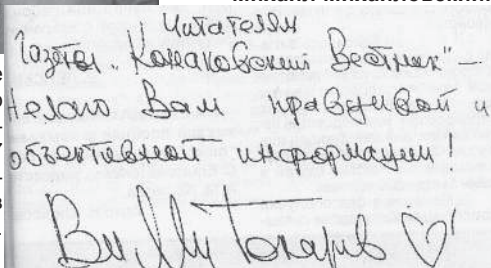 Читателям
Газеты „Конаковский Вестник" —
Желаю Вам правдивой и
объективной информации!
Вилли Токарев